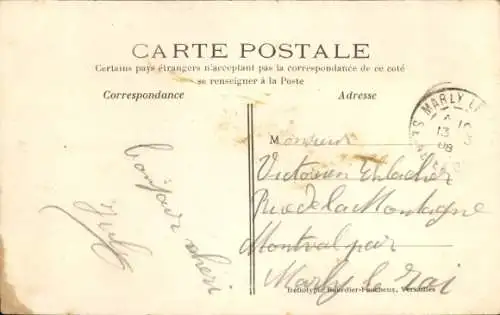 CARTE POSTALE
Certains pays étrangers n'acceptant pas la correspondance de ce coté
se renseigner à la Poste
Correspondance
Adresse
bonjour chéri
July
MARLY LE
13
08
Monsieur
Victorien
Rue de la Montagne
Montval par
Marly le roi
Bourdier-Faucheux, Versailles